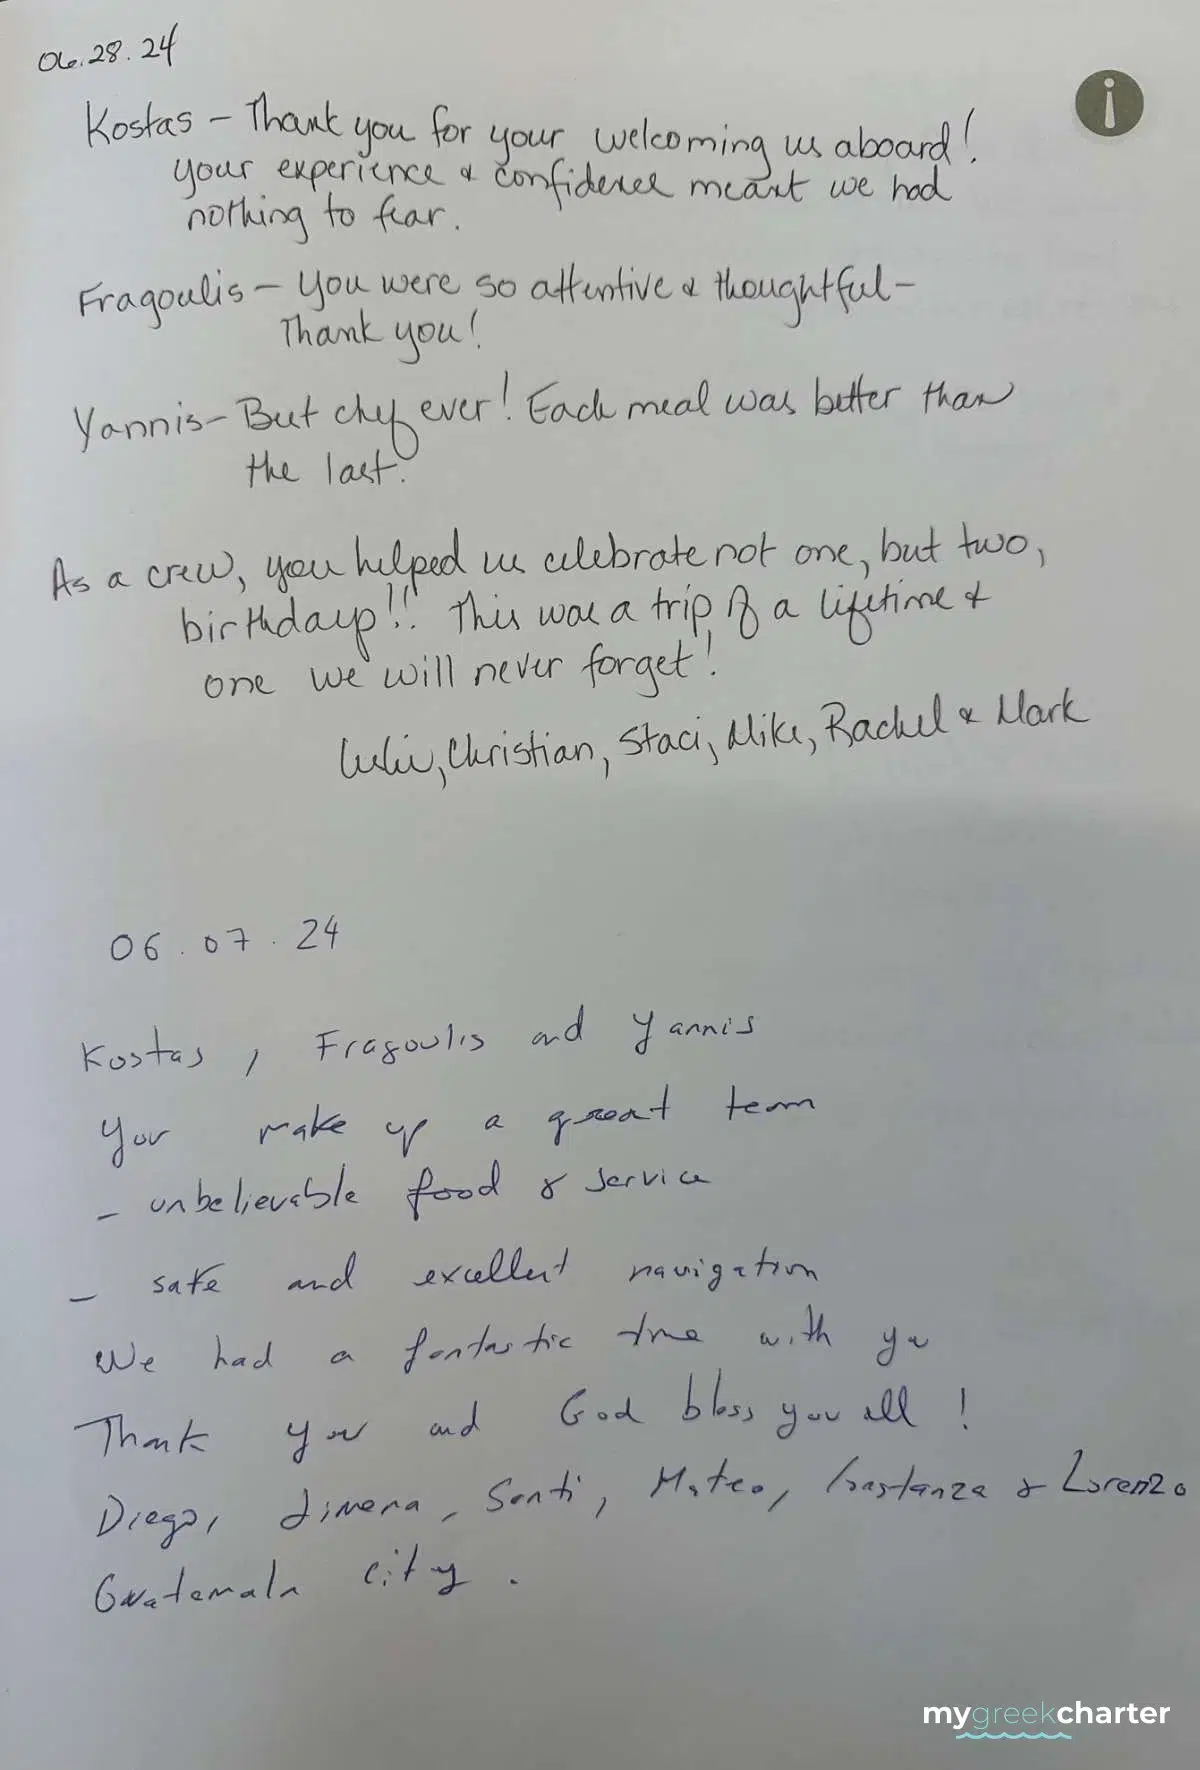 06.28.24
Kostas – Thank you for your welcoming us aboard!
your experience & confidence meant we had
nothing to fear.
Fragoulis – You were so attentive & thoughtful –
Thank you!
Yannis – Best chef ever! Each meal was better than
the last.
As a crew, you helped us celebrate not one, but two,
birthdays!! This was a trip of a lifetime &
one we will never forget!
Christian, Staci, Mike, Rachel & Mark
06.07.24
Kostas, Fragoulis and Yannis
You make up a great team
– unbelievable food & service
– safe and excellent navigation
We had a fantastic time with you
Thank you and God bless you all!
Diego, Jimena, Santi, Mateo, Constanza & Lorenzo
Guatemala city.
mygreekcharter